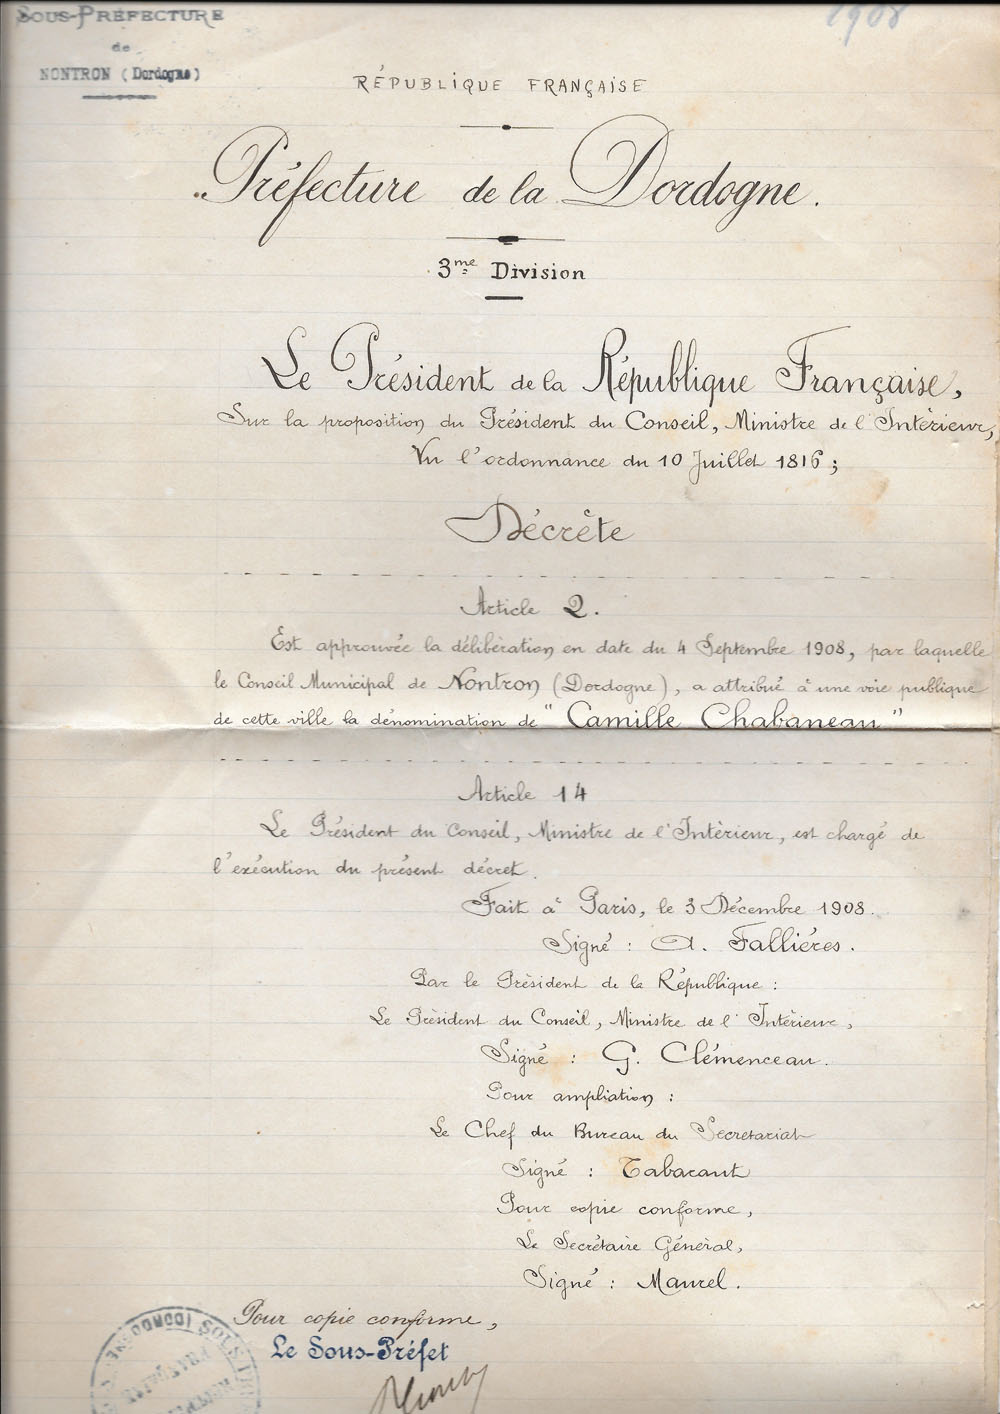 SOUS-PRÉFECTURE
de
NONTRON (Dordogne)
1908
RÉPUBLIQUE FRANÇAISE
Préfecture de la Dordogne.
3me Division
Le Président de la République Française,
Sur la proposition du Président du Conseil, Ministre de l'Intérieur,
Vu l'ordonnance du 10 Juillet 1816;
Décrète
Article 2.
Est approuvée la délibération en date du 4 Septembre 1908, par laquelle
le Conseil Municipal de Nontron (Dordogne), a attribué à une voie publique
de cette ville la dénomination de "Camille Chabaneau"
Article 14
Le Président du Conseil, Ministre de l'Intérieur, est chargé de
l'exécution du présent décret.
Fait à Paris, le 3 Décembre 1908.
Signé : A. Fallières.
Par le Président de la République :
Le Président du Conseil, Ministre de l'Intérieur,
Signé : G. Clémenceau.
Pour ampliation :
Le Chef du Bureau du Secrétariat
Signé : Tabarant
Pour copie conforme,
Le Secrétaire Général,
Signé : Maurel.
Pour copie conforme,
Le Sous-Préfet